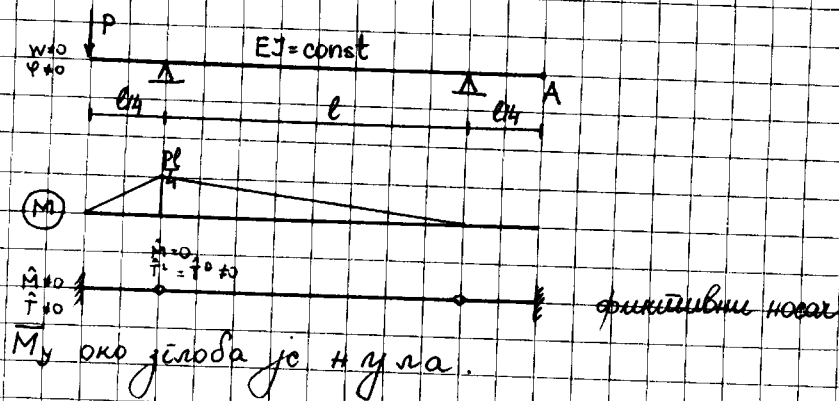 P
w≠0
φ≠0
EJ=const
A
l/4
l
l/4
Pl
4
M
M̂=0
T̂ᴸ = T̂ᴰ ≠0
M̂≠0
T̂≠0
фиктивни носач
око зглоба је нула.